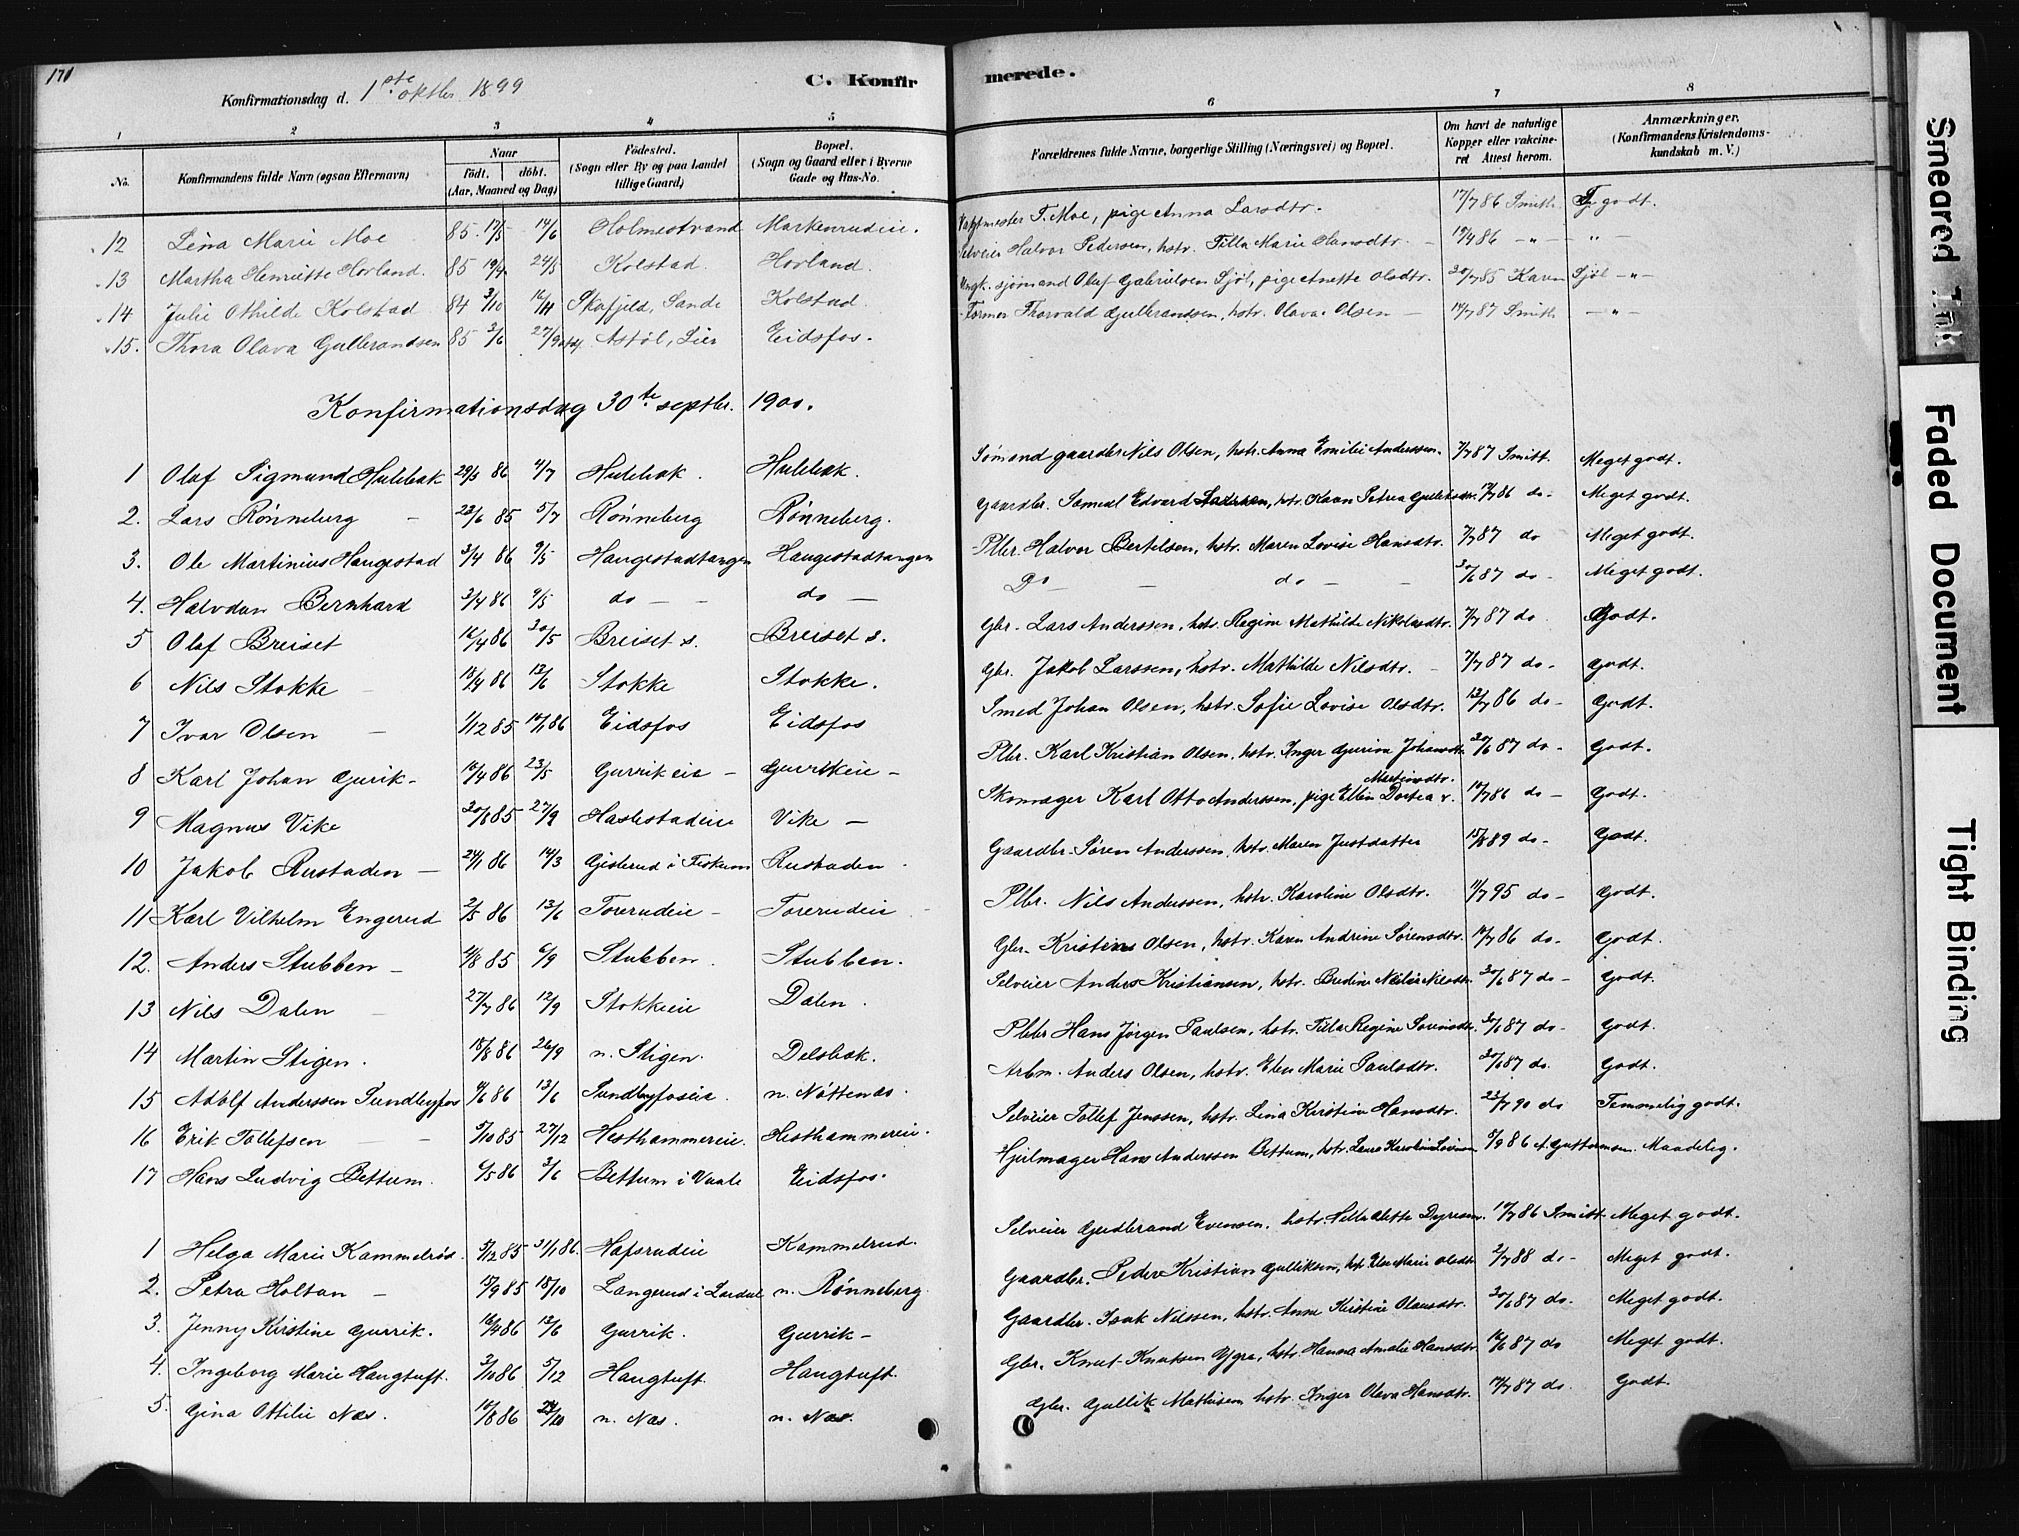 170
Konfirmationsdag d. 1ste oktbr. 1899
C. Konfirmerede.
1 2 3 4 5 6 7 8
No.
Konfirmandens fulde Navn (ogsaa Efternavn)
Naar
født. døbt.
(Aar, Maaned og Dag)
Fødested.
(Sogn eller By og paa Landet tillige Gaard)
Bopæl.
(Sogn og Gaard eller i Byerne Gade og Hus-No.
Forældrenes fulde Navne, borgerlige Stilling (Næringsvei) og Bopæl.
Om havt de naturlige Kopper eller vakcineret Attest herom.
Anmærkninger.
(Konfirmandens Kristendomskundskab m. V.)
12 Lena Marie Moe 85 17/5 14/6 Holmestrand Markerudeie. T. Moe, pige Anna Larsdtr. 17/7 86 Smith godt.
13 Martha Henriette Hovland. 85 19/4 24/5 Kolstad. Hovland. Selveier Halvor Pedersen, hstr. Tilla Marie Hansdtr. - 19/4 86 - " - " -
14 Julie Othilde Kolstad 84 3/10 16/11 Skafjeld, Sande Kolstad Ungk. sjømand Oluf Gabrielsen Sjøl, pige Anette Olsdtr. 20/7 85 Karen Sjøl - " -
15. Thora Olava Gulbrandsen 85 3/6 27/9 Astøl, Lier Eidsfos. Former Thorvald Gulbrandssen, hstr. Olava Olsen - 14/7 87 Smith - " -
Konfirmationsdag 30te septbr. 1900.
1 Olaf Sigmund Hulebak 29/3 86 4/7 Hulebak. Hulebak. Sømand gaardbr Nils Olsen, hstr. Anna Emilie Anderssen. 7/7 87 Smitt Meget godt.
2. Lars Rønneberg - 23/6 85 5/7 Rønneberg Rønneberg. Gaardbr. Samuel Edvard Larssen, hstr. Karen Petrea 17/7 86 do - Meget godt.
3. Ole Martinius Haugestad 3/4 86 9/5 Haugestadtangen Haugestadtangen Plbr. Halvor Bertelsen, hstr. Maren Lovise Hansdtr. 7/7 87 do Meget godt.
4. Halvdan Bernhard 3/4 86 9/5 do - - do - Do - do - - 30/6 87 do - Meget godt.
5 Olaf Breiset 16/4 86 30/5 Breiset s. Breiset s. Gbr. Lars Anderssen, hstr. Regine Mathilde Nikolaidtr. 7/7 87 do Godt.
6 Nils Stokke 18/4 86 13/6 Stokke Stokke. Gbr. Jakob Larssen, hstr. Mathilde Nilsdtr. - 7/7 87 do - Godt.
7 Ivar Olsen - 1/12 85 17/1 86 Eidsfos Eidsfos Smed Johan Olsen, hstr. Sofie Lovise Olsdtr. 13/7 86 do - Godt.
8 Karl Johan Gurik - 16/4 86 23/5 Gurrikeie - Gurrikeie - Plbr. Karl Kristian Olsen, hstr. Inger Gurine Johansdtr. 30/6 87 do - Godt.
9 Magnus Vike 20/8 85 27/9 Haslestadeie Vike - Skomager Karl Otto Anderssen, pige Ellen Dortea Martinsdtr. 17/7 86 do - Godt.
10 Jakob Rustaden - 24/1 86 14/3 Gislerud i Fiskum Rustaden. Gaardbr. Søren Anderssen, hstr. Maren Justdatter 15/8 89 do - Godt.
11 Karl Vilhelm Engerud 2/5 86 13/6 Torerudeie - Torerudeie - Plbr. Nils Anderssen, hstr. Karoline Olsdtr. 11/7 95 do - Godt.
12. Anders Stubben - 4/8 85 6/9 Stubben. Stubben. Gbr. Kristians Olsen, hstr. Karen Andrine Sørensdtr. 17/7 86 do. Godt.
13 Nils Dalen - 27/7 86 12/9 Stokkeie Dalen. Selveier Anders Kristiansen, hstr. Bredine Nilsdtr. 30/6 87 do - Godt.
14 Martin Stigen. 18/8 86 26/9 n. Stigen. Delebak. Plbr Hans Jørgen Paulsen, hstr. Tilla Regine Sørensdtr. 30/6 87 do - Godt.
15 Adolf Anderssen Sundbyfos 4/6 86 13/6 Sundbyfoseie. n. Nøttenæs. Arbm. Anders Olsen, hstr. Elen Marie Paulsdtr. 30/6 87 do. Godt.
16 Erik Tollefsen - - 5/10 85 27/12 Hesthammereie. Hesthammereie. Selveier Tollef Jenssen, hstr. Lina Kirstine Hansdtr. 23/7 90 do Temmelig godt.
17 Hans Ludvig Bettum. 6/5 86 3/6 Bettum i Vaale Eidsfos. Hjulmager Hans Anderssen Bettum, hstr. Laura Karoline 5/9 86 A. Guttormsen. Maadelig.
1 Helga Marie Kammelrød. 5/12 85 31/1 86. Hafsrudeie Kammelrud. Selveier Gudbrand Evensen. hstr. Dyresen. 17/7 86 Smitt Meget godt.
2. Petra Holtan - 17/9 85 18/10 Langerud i Lardal n. Rønneberg. Gaardbr. Peder Kristian Gulliksen, hstr Elen Marie Olsdtr 2/7 88 do - Meget godt.
3. Jenny Kirstine Gurrik. 16/4 86 12/6 Gurrik. Gurrik - Gaardbr. Isak Nilssen, hstr. Anne Kirstine Olausdtr. 30/6 87 do. Meget godt.
4. Ingeborg Marie Haugtuft. 3/10 86 5/12 Haugtuft. Haugtuft. Gbr. Knut Knutsen Ygre, hstr. Hanna Amalie Hansdtr 16/6 87 do Meget godt.
5. Gina Ottilie Næs. 16/8 86 24/10 n. Næs. n. Næs. Gbr. Gullik Mathisen hstr. Inger Olava Hansdtr. 14/7 87 do. Godt.
Smeared Ink
Faded Document
Tight Binding